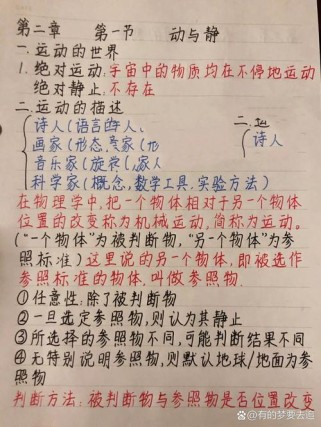 第二章 第一节 动与静
一.运动的世界
1.绝对运动:宇宙中的物质均在不停地运动
绝对静止:不存在
二.运动的描述
诗人(语言的
画家(形态
音乐家(旋律
科学家(概念,数学工具.实验方法)
二.
诗人
在物理学中,把一个物体相对于另一个物体
位置的改变称为机械运动,简称为运动。
(“一个物体”为被判断物,“另一个物体”为参
照标准)这里说的另一个物体,即被选作
参照标准的物体,叫做参照物.
①任意性:除了被判断物
②一旦选定参照物,则认为其静止
③所选择的参照物不同,可能判断结果不同
④无特别说明参照物,则默认地球/地面为参
照物
判断方法:被判断物与参照物是否位置改变
@有的梦要去追